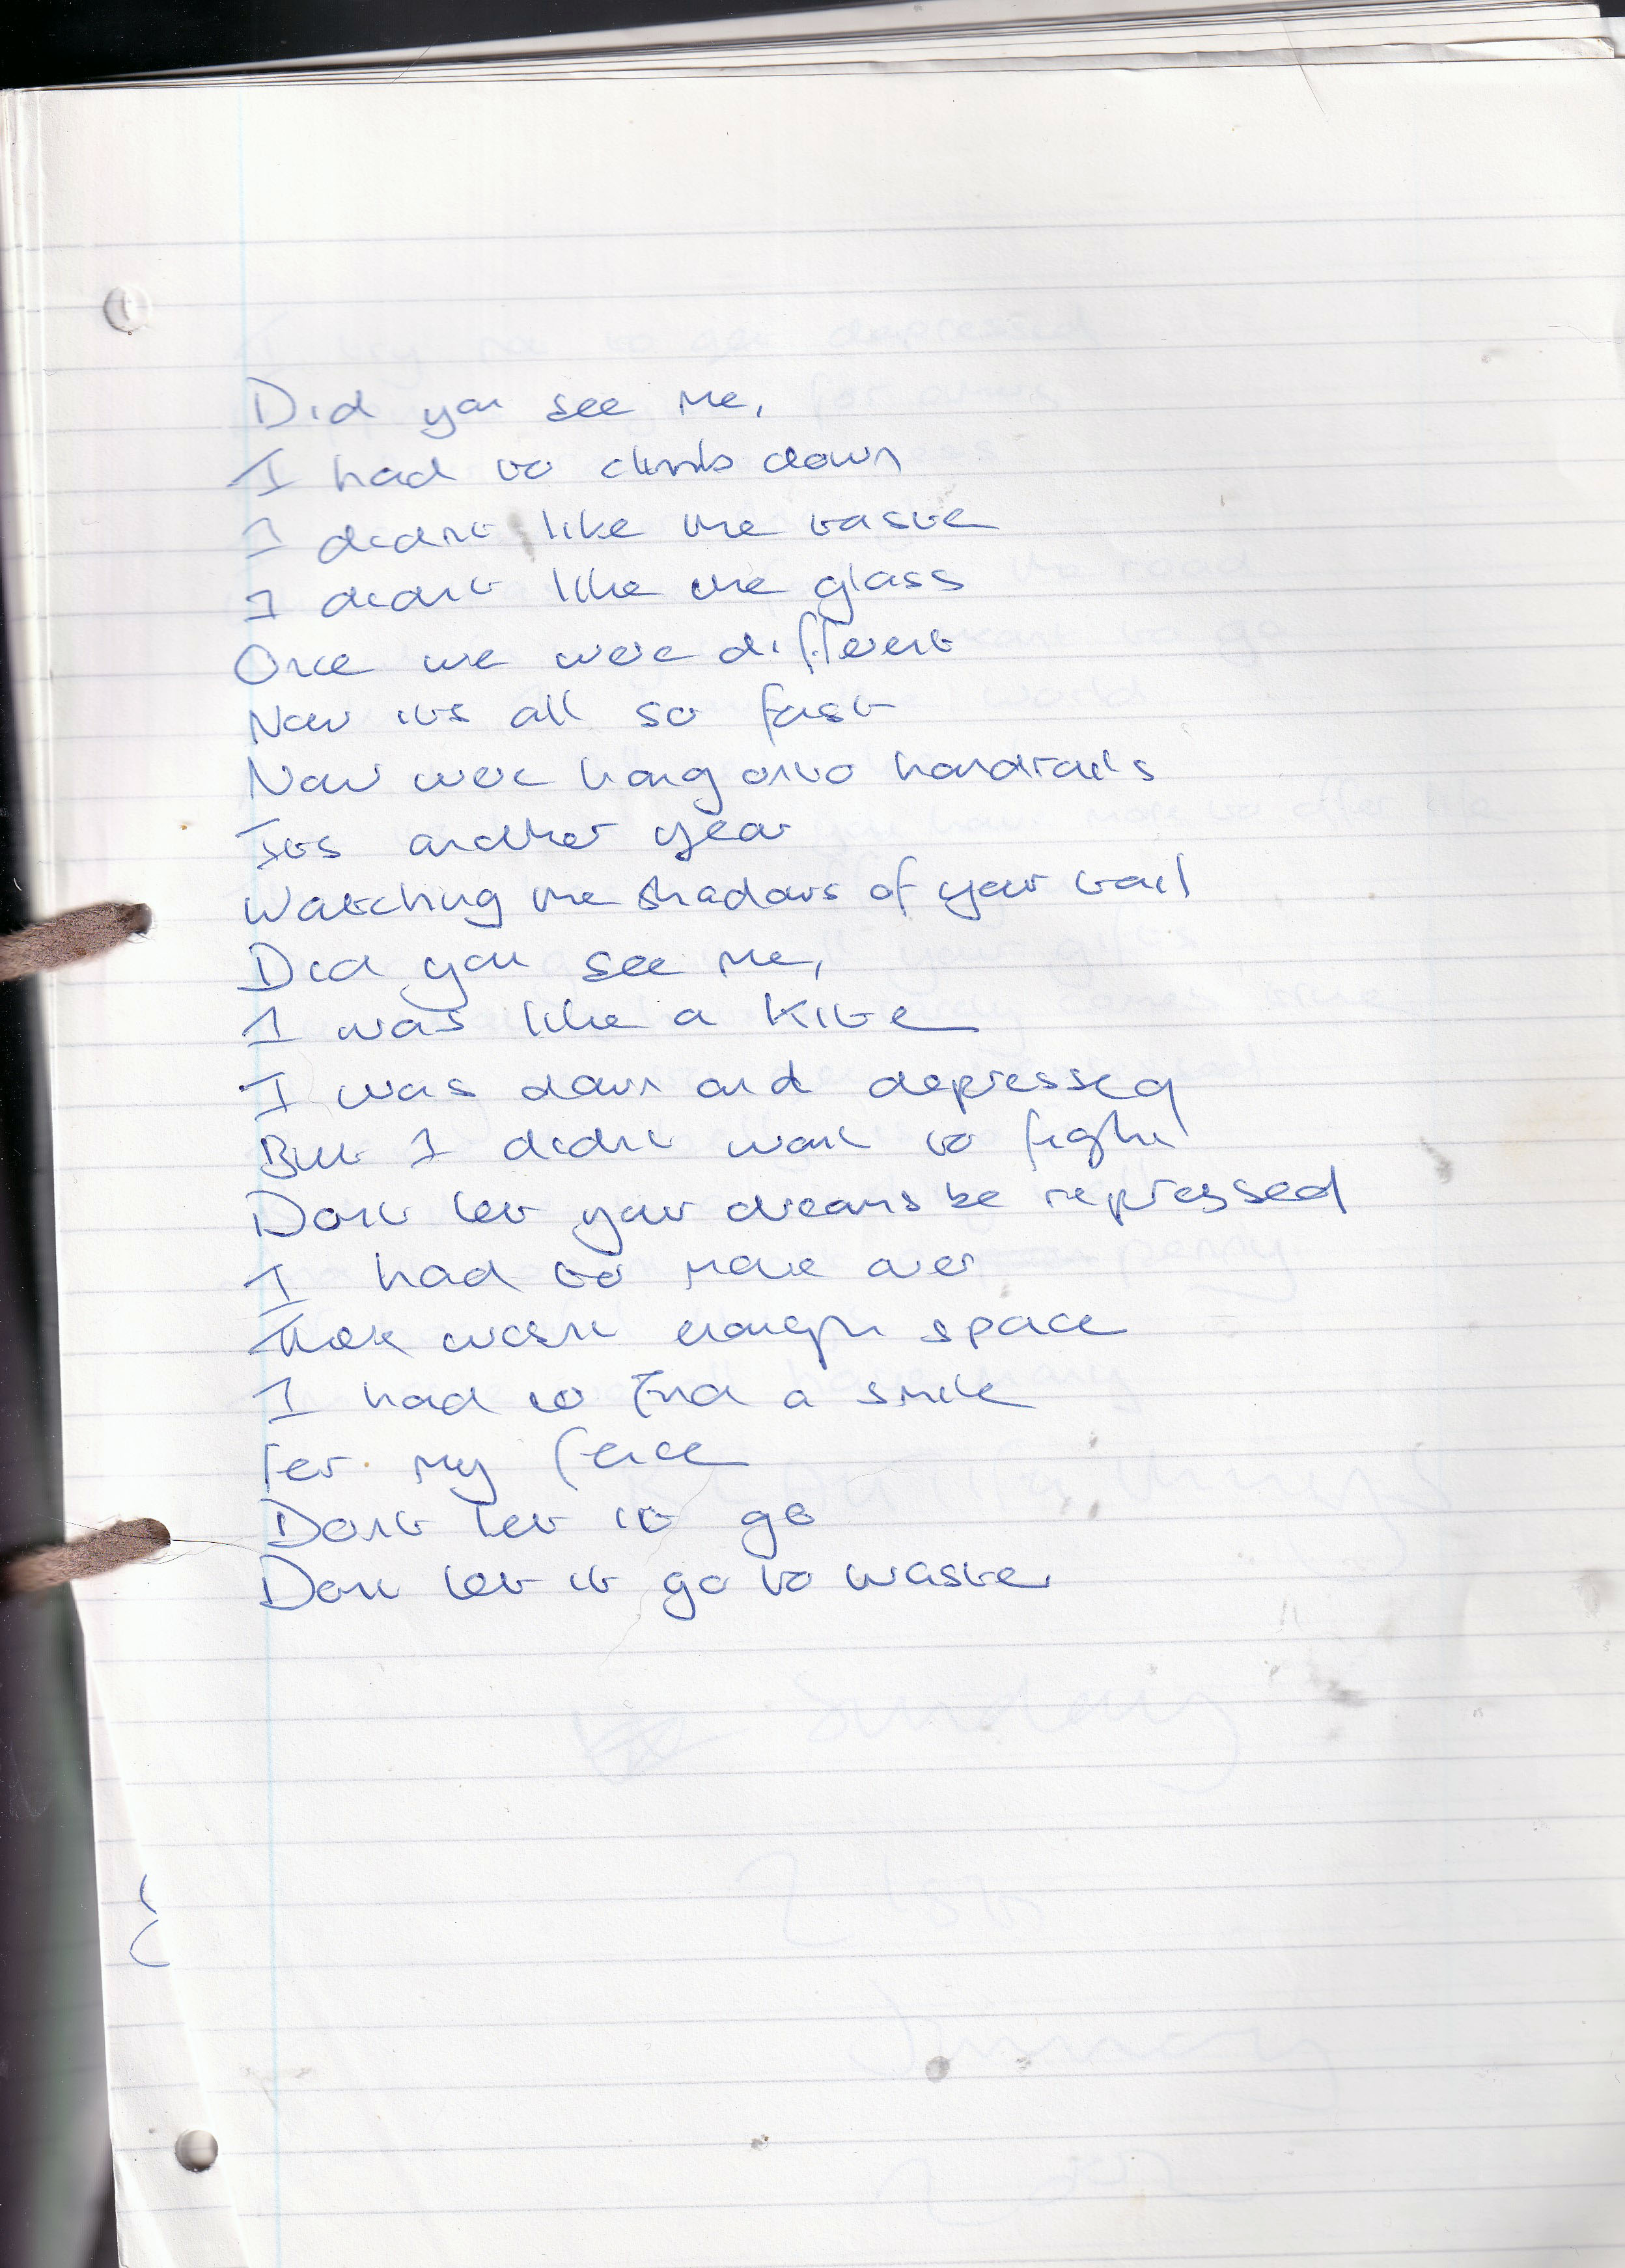 Did you see me,
I had to climb down
I didnt like the taste
I didnt like the glass
Once we were different
Now its all so fast
Now were hang onto handrails
Its another year
Watching the shadows of your tail
Did you see me,
I was like a kite
I was down and depressed
But I didnt want to fight
Dont let your dreams be repressed
I had to move over
There wasnt enough space
I had to find a smile
For my face
Dont let it go
Dont let it go to waste